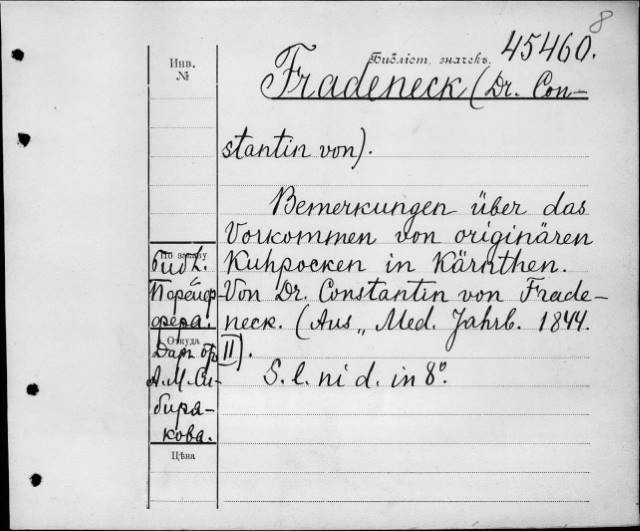 8
Библіот. значекъ. 45460.
Инв.
№
Fradeneck (Dr. Con-
stantin von).
Bemerkungen über das
Vorkommen von originären
Kuhpocken in Kärnthen.
Von Dr. Constantin von Frade-
neck. (Aus „Med. Jahrb. 1844.
II).
S. l. ni d. in 8º.
По заказу
библ.
Порейф-
фера.
Откуда
Даръ бр
А. М. Си-
биря-
кова.
Цѣна